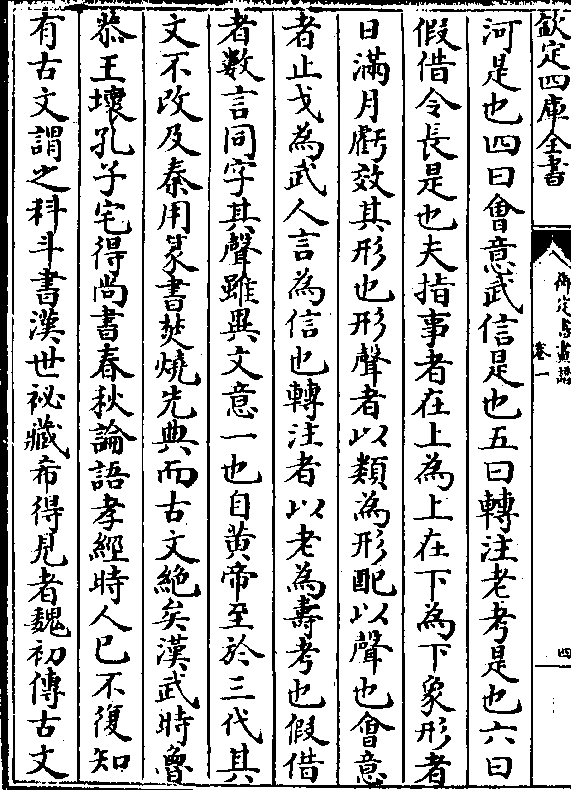 欽定四庫全書
御定書畫譜
卷一
四
河是也四曰會意武信是也五曰轉注老考是也六曰
假借令長是也夫指事者在上為上在下為下象形者
日滿月虧效其形也形聲者以類為形配以聲也會意
者止戈為武人言為信也轉注者以老為壽考也假借
者數言同字其聲雖異文意一也自黄帝至於三代其
文不改及秦用篆書焚燒先典而古文絶矣漢武時魯
恭王壞孔子宅得尚書春秋論語孝經時人已不復知
有古文謂之科斗書漢世祕藏希得見者魏初傳古文